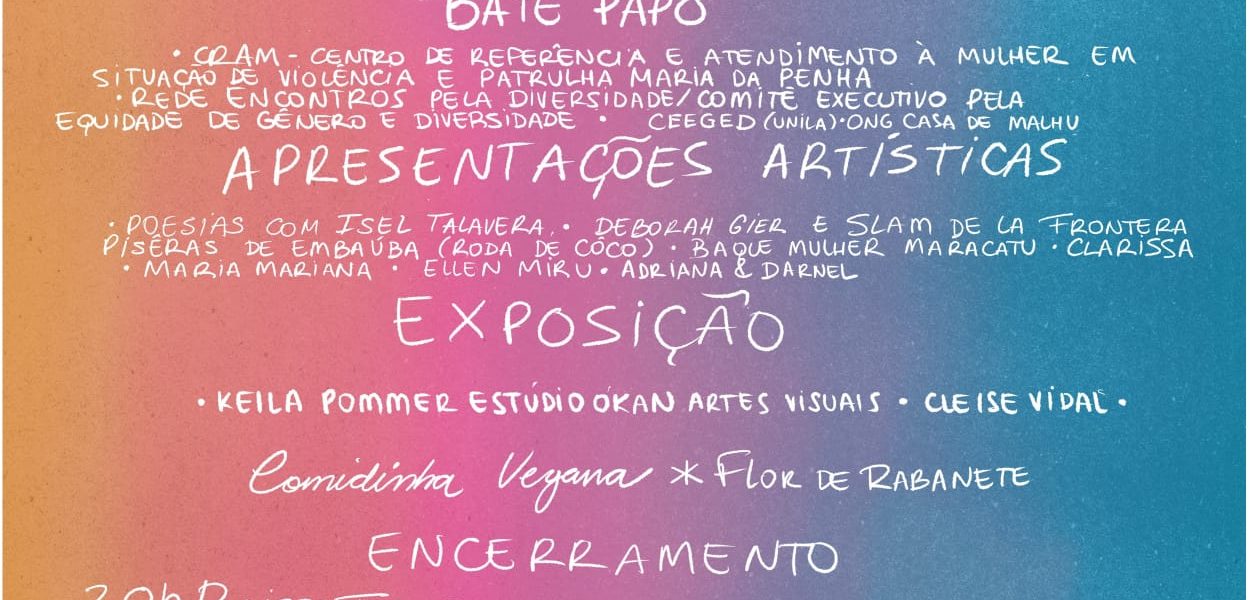 BATE PAPO
• CRAM - CENTRO DE REFERÊNCIA E ATENDIMENTO À MULHER EM
SITUAÇÃO DE VIOLÊNCIA E PATRULHA MARIA DA PENHA
• REDE ENCONTROS PELA DIVERSIDADE/COMITÊ EXECUTIVO PELA
EQUIDADE DE GÊNERO E DIVERSIDADE • CEEGED (UNILA) • ONG CASA DE MALHU
APRESENTAÇÕES ARTÍSTICAS
• POESIAS COM ISEL TALAVERA. • DEBORAH GIER E SLAM DE LA FRONTERA
PISÊRAS DE EMBAÚBA (RODA DE CÔCO) • BAQUE MULHER MARACATU • CLARISSA
• MARIA MARIANA • ELLEN MIRU • ADRIANA & DARNEL
EXPOSIÇÃO
• KEILA POMMER ESTÚDIO OKAN ARTES VISUAIS • CLEISE VIDAL •
Comidinha Vegana * FLOR DE RABANETE
ENCERRAMENTO
20h